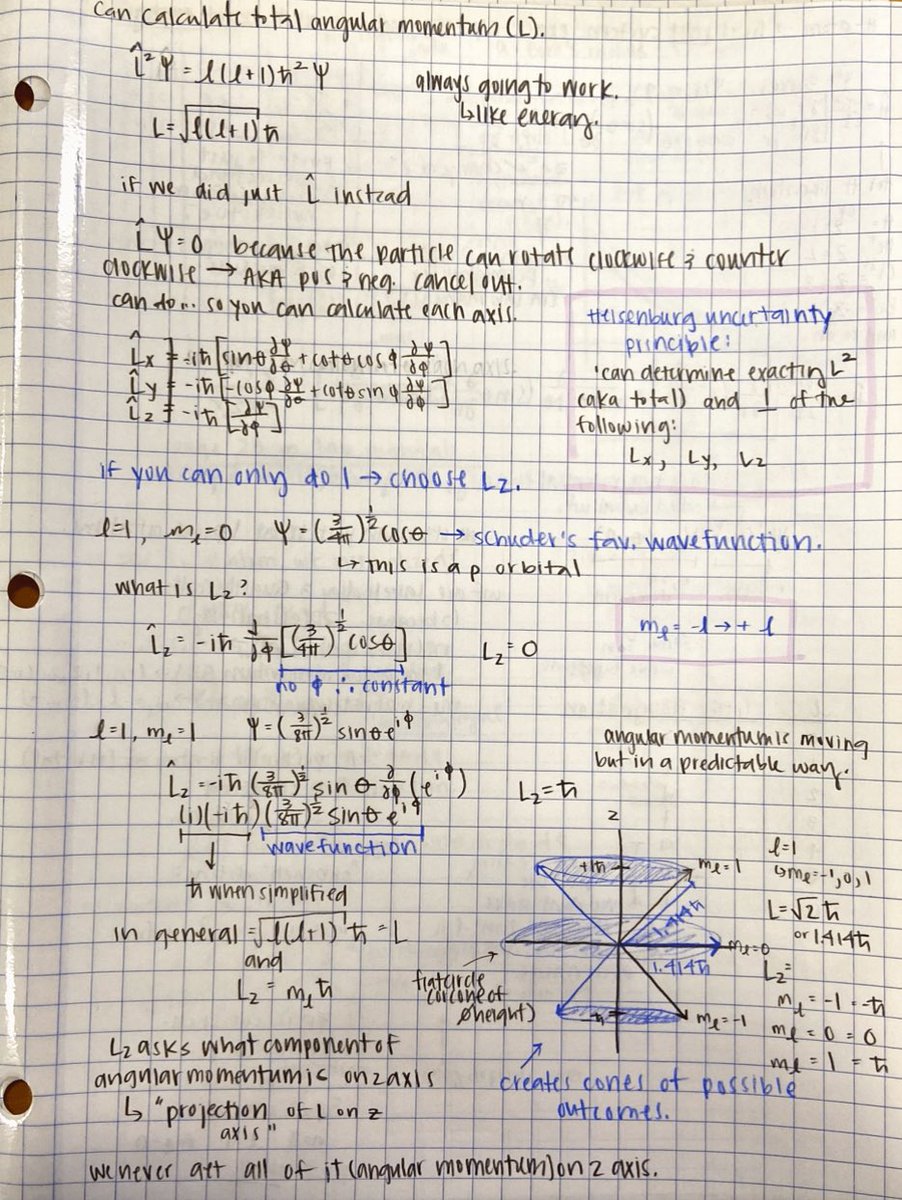 can calculate total angular momentum (L).
L̂²Ψ = l(l+1)ħ²Ψ
always going to work.
↳like energy.
L=√l(l+1) ħ
if we did just L̂ instead
L̂Ψ=0 because the particle can rotate clockwise & counter
clockwise → AKA pos & neg. cancel out.
can do... so you can calculate each axis.
L̂x = -iħ[sinθ ∂Ψ/∂θ + cotθcosφ ∂Ψ/∂φ]
L̂y = -iħ[-cosφ ∂Ψ/∂θ + cotθsinφ ∂Ψ/∂φ]
L̂z = -iħ[∂Ψ/∂φ]
Heisenburg uncertainty
principle:
'can determine exacting L²
(aka total) and 1 of the
following:
Lx, Ly, Lz
if you can only do 1 → choose Lz.
l=1, ml=0 Ψ=(3/4π)^½ cosθ → schuder's fav. wavefunction.
↳ this is a p orbital
what is Lz?
L̂z = -iħ ∂/∂φ[(3/4π)^½ cosθ] Lz=0
no φ ∴ constant
ml = -l → + l
l=1, ml=1 Ψ=(3/8π)^½ sinθe^iφ
L̂z = -iħ (3/8π)^½ sinθ ∂/∂φ (e^iφ) Lz=ħ
(i)(-iħ)(3/8π)^½ sinθ e^iφ
wavefunction
↓
ħ when simplified
in general = √l(l+1) ħ = L
and
Lz = mlħ
angular momentum is moving
but in a predictable way.
z
+1ħ
ml=1
1.414ħ
ml=0
1.414ħ
-ħ
ml=-1
flat circle
(or cone of
∅ height)
creates cones of possible
outcomes.
l=1
↳ml=-1,0,1
L=√2 ħ
or 1.414ħ
Lz=
ml = -1 = -ħ
ml = 0 = 0
ml = 1 = ħ
Lz asks what component of
angular momentum is on z axis
↳ "projection of L on z
axis"
we never get all of it (angular momentum) on z axis.